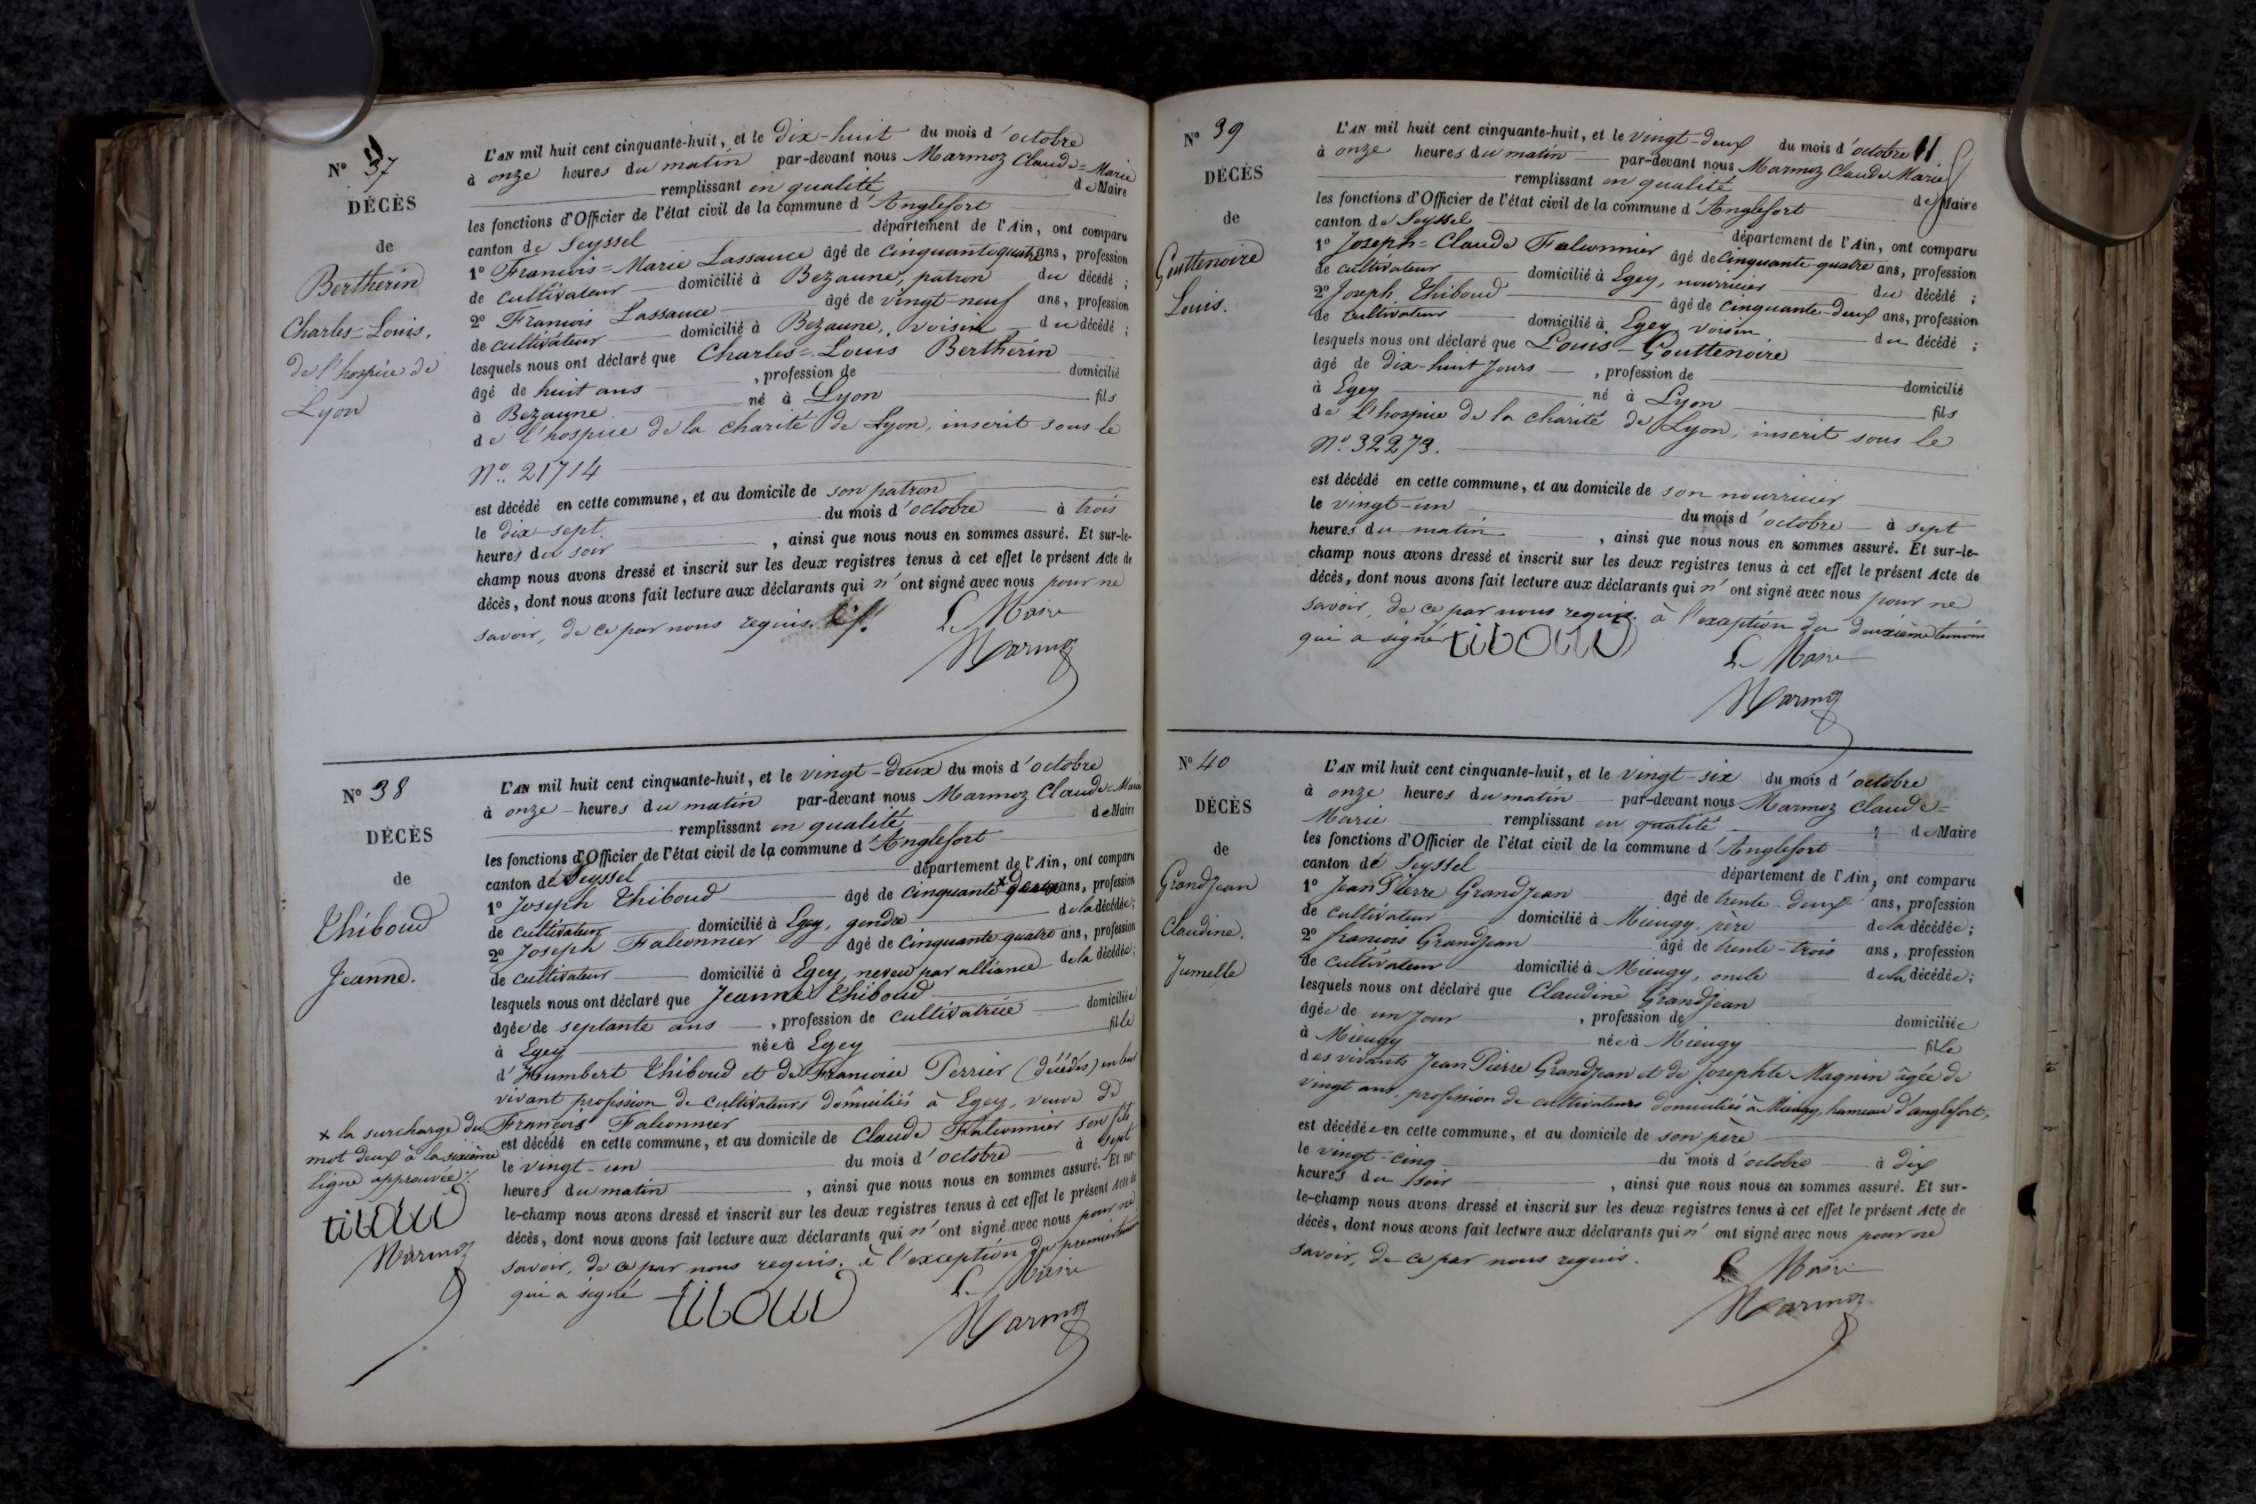 11
N° 37
DÉCÈS
de
Bertherin
Charles=Louis.
de l'hospice de
Lyon
L'AN mil huit cent cinquante-huit, et le dix-huit du mois d'octobre
à onze heures du matin par-devant nous Marmoz Claude=Marie
remplissant en qualité de Maire
les fonctions d'Officier de l'état civil de la commune d'Anglefort
canton de Seyssel département de l'Ain, ont comparu
1° François=Marie Lassauce âgé de cinquante quatre ans, profession
de cultivateur domicilié à Bezaune, patron du décédé ;
2° François Lassauce âgé de vingt-neuf ans, profession
de cultivateur domicilié à Bezaune, voisin du décédé ;
lesquels nous ont déclaré que Charles=Louis Bertherin
âgé de huit ans , profession de domicilié
à Bezaune né à Lyon fils
de l'hospice de la charité de Lyon, inscrit sous le
N°. 21714
est décédé en cette commune, et au domicile de son patron
le dix-sept du mois d'octobre à trois
heures du soir , ainsi que nous nous en sommes assuré. Et sur-le-
champ nous avons dressé et inscrit sur les deux registres tenus à cet effet le présent Acte de
décès, dont nous avons fait lecture aux déclarants qui n'ont signé avec nous pour ne
savoir, de ce par nous requis.
Le Maire
Marmoz
N° 38
DÉCÈS
de
Thiboud
Jeanne.
L'AN mil huit cent cinquante-huit, et le vingt-deux du mois d'octobre
à onze heures du matin par-devant nous Marmoz Claude=Marie
remplissant en qualité de Maire
les fonctions d'Officier de l'état civil de la commune d'Anglefort
canton de Seyssel département de l'Ain, ont comparu
1° Joseph Thiboud âgé de cinquante x deux ans, profession
de cultivateur domicilié à Egey, gendre de la décédée ;
2° Joseph Falconnier âgé de cinquante quatre ans, profession
de cultivateur domicilié à Egey, neveu par alliance de la décédée ;
lesquels nous ont déclaré que Jeanne Thiboud
âgée de septante ans , profession de cultivatrice domiciliée
à Egey née à Egey fille
d'Humbert Thiboud et de Françoise Perrier (décédés) en leur
vivant profession de cultivateurs domiciliés à Egey, veuve de
François Falconnier
est décédé en cette commune, et au domicile de Claude Falconnier son fils
le vingt-un du mois d'octobre à sept
heures du matin , ainsi que nous nous en sommes assuré. Et sur-
le-champ nous avons dressé et inscrit sur les deux registres tenus à cet effet le présent Acte de
décès, dont nous avons fait lecture aux déclarants qui n'ont signé avec nous pour ne
savoir, de ce par nous requis. à l'exception du premier témoin
qui a signé tiboud
Le Maire
Marmoz
x la surcharge du
mot deux à la sixième
ligne approuvée ;.
tiboud
Marmoz
N° 39
DÉCÈS
de
Gouttenoire
Louis.
L'AN mil huit cent cinquante-huit, et le vingt-deux du mois d'octobre 11
à onze heures du matin par-devant nous Marmoz Claude Marie
remplissant en qualité de Maire
les fonctions d'Officier de l'état civil de la commune d'Anglefort
canton de Seyssel département de l'Ain, ont comparu
1° Joseph=Claude Falconnier âgé de cinquante-quatre ans, profession
de cultivateur domicilié à Egey, nourricier du décédé ;
2° Joseph Thiboud âgé de cinquante-deux ans, profession
de cultivateur domicilié à Egey voisin du décédé ;
lesquels nous ont déclaré que Louis-Gouttenoire
âgé de dix-huit Jours , profession de domicilié
à Egey né à Lyon fils
de l'hospice de la charité de Lyon, inscrit sous le
N°. 32273.
est décédé en cette commune, et au domicile de son nourricier
le vingt-un du mois d'octobre à sept
heures du matin , ainsi que nous nous en sommes assuré. Et sur-le-
champ nous avons dressé et inscrit sur les deux registres tenus à cet effet le présent Acte de
décès, dont nous avons fait lecture aux déclarants qui n'ont signé avec nous pour ne
savoir, de ce par nous requis. à l'exception du deuxième témoin
qui a signé tiboud
Le Maire
Marmoz
N° 40
DÉCÈS
de
GrandJean
Claudine.
Jumelle
L'AN mil huit cent cinquante-huit, et le vingt-six du mois d'octobre
à onze heures du matin par-devant nous Marmoz Claude=
Marie remplissant en qualité de Maire
les fonctions d'Officier de l'état civil de la commune d'Anglefort
canton de Seyssel département de l'Ain, ont comparu
1° Jean Pierre GrandJean âgé de trente-deux ans, profession
de cultivateur domicilié à Mieugy, père de la décédée ;
2° françois GrandJean âgé de trente-trois ans, profession
de cultivateur domicilié à Mieugy, oncle de la décédée ;
lesquels nous ont déclaré que Claudine GrandJean
âgée de un Jour , profession de domiciliée
à Mieugy née à Mieugy fille
des vivants Jean Pierre GrandJean et de Josephte Magnin âgée de
vingt ans, profession de cultivateurs domiciliés à Mieugy, hameau d'anglefort,
est décédée en cette commune, et au domicile de son père
le vingt-cinq du mois d'octobre à dix
heures du soir , ainsi que nous nous en sommes assuré. Et sur-
le-champ nous avons dressé et inscrit sur les deux registres tenus à cet effet le présent Acte de
décès, dont nous avons fait lecture aux déclarants qui n'ont signé avec nous pour ne
savoir, de ce par nous requis.
Le Maire
Marmoz